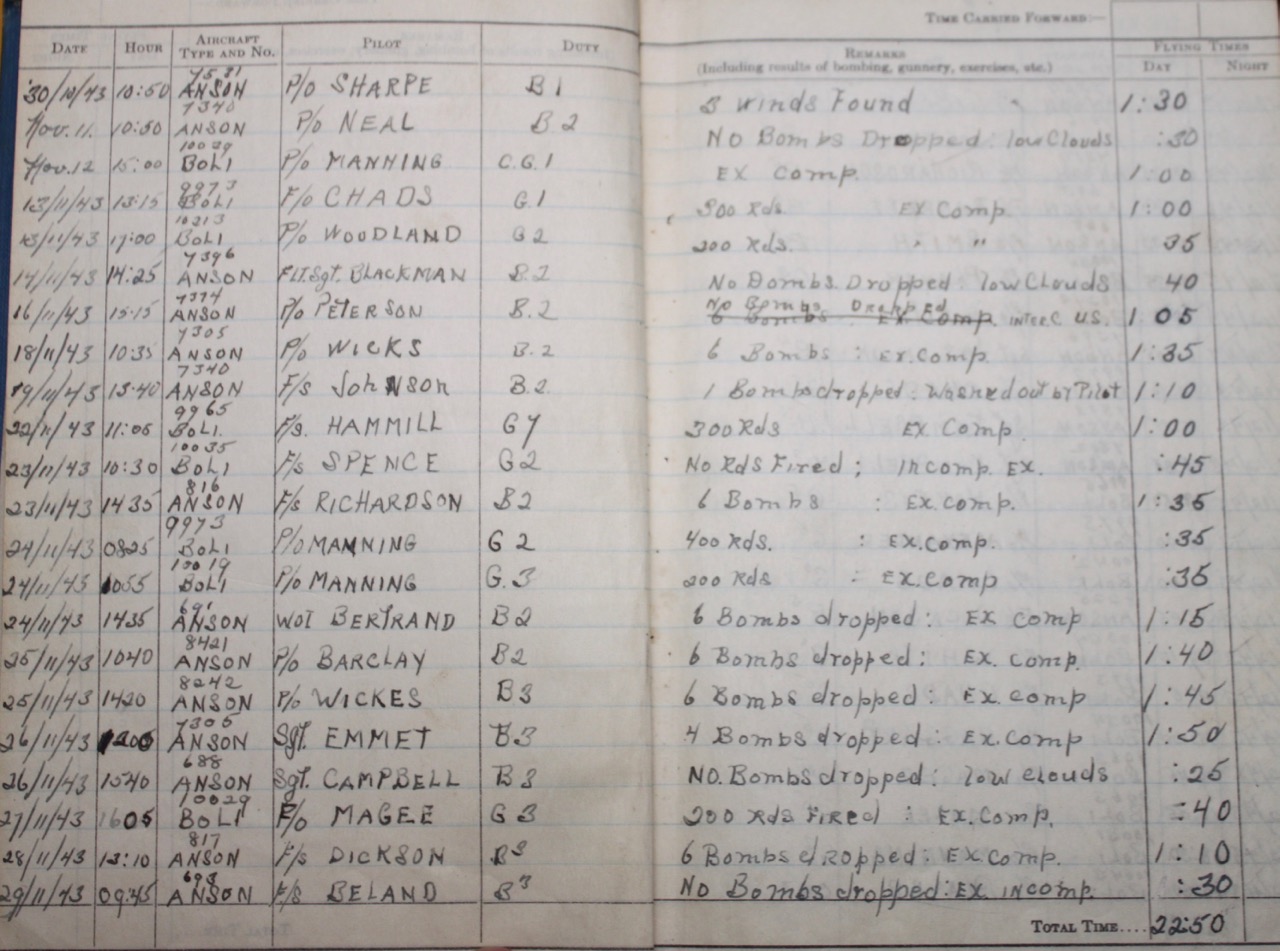 TIME CARRIED FORWARD:—
DATE HOUR AIRCRAFT TYPE AND No. PILOT DUTY REMARKS (Including results of bombing, gunnery, exercises, etc.) FLYING TIMES DAY NIGHT
30/10/43 10:50 ANSON P/O SHARPE B1 3 Winds Found 1:30
Nov. 11. 10:50 7340 ANSON P/o NEAL B.2 No Bombs Dropped: low Clouds :30
Nov. 12 15:00 10029 BOLI P/o MANNING C.G.1 EX Comp. 1:00
13/11/43 13:15 9973 BOLI F/o CHADS G.1 300 Rds. EX Comp. 1:00
13/11/43 17:00 10213 BOLI P/o WOODLAND G2 200 Rds. " " 35
14/11/43 14:25 7396 ANSON FLT.Sgt. BLACKMAN B.2 No Bombs Dropped: low Clouds 40
16/11/43 15:15 7374 ANSON P/o PETERSON B.2 No Bombs Dropped 6 Bombs: Ex. Comp. INTERC U.S. 1 05
18/11/43 10:35 7305 ANSON P/o WICKS B.2 6 Bombs : Ex. Comp. 1:35
19/11/43 13:40 7340 ANSON F/s Johnson B.2. 1 Bombs dropped: Washed out by Pilot 1:10
22/11/43 11:05 9965 BOLI. F/s. HAMMILL G7 300 Rds EX. Comp. 1:00
23/11/43 10:30 10035 BOLI F/s SPENCE G2 No Rds Fired; Incomp. EX. :45
23/11/43 1435 816 ANSON F/s RICHARDSON B2 6 Bombs : Ex. Comp. 1:35
24/11/43 0825 9973 BOLI P/o MANNING G2 400 Rds. : EX. Comp. :35
24/11/43 1055 10019 BOLI P/o MANNING G.3 200 Rds : EX. Comp :35
24/11/43 1435 691 ANSON WO1 BERTRAND B2 6 Bombs dropped: EX Comp 1:15
25/11/43 1040 8421 ANSON P/o BARCLAY B2 6 Bombs dropped: EX. Comp. 1:40
25/11/43 1420 8242 ANSON P/o WICKES B3 6 Bombs dropped: Ex. comp 1:45
26/11/43 1200 7305 ANSON Sgt. EMMET B3 4 Bombs dropped: Ex. Comp 1:50
26/11/43 1540 688 ANSON Sgt. CAMPBELL B3 NO. Bombs dropped: low clouds :25
27/11/43 1605 10029 BOLI P/o MAGEE G3 200 Rds Fired : Ex. Comp. :40
28/11/43 13:10 817 ANSON F/s DICKSON B3 6 Bombs dropped: EX. Comp. 1:10
29/11/43 09:45 693 ANSON F/s BELAND B3 NO Bombs dropped: EX. INCOMP. :30
TOTAL TIME.... 22:50